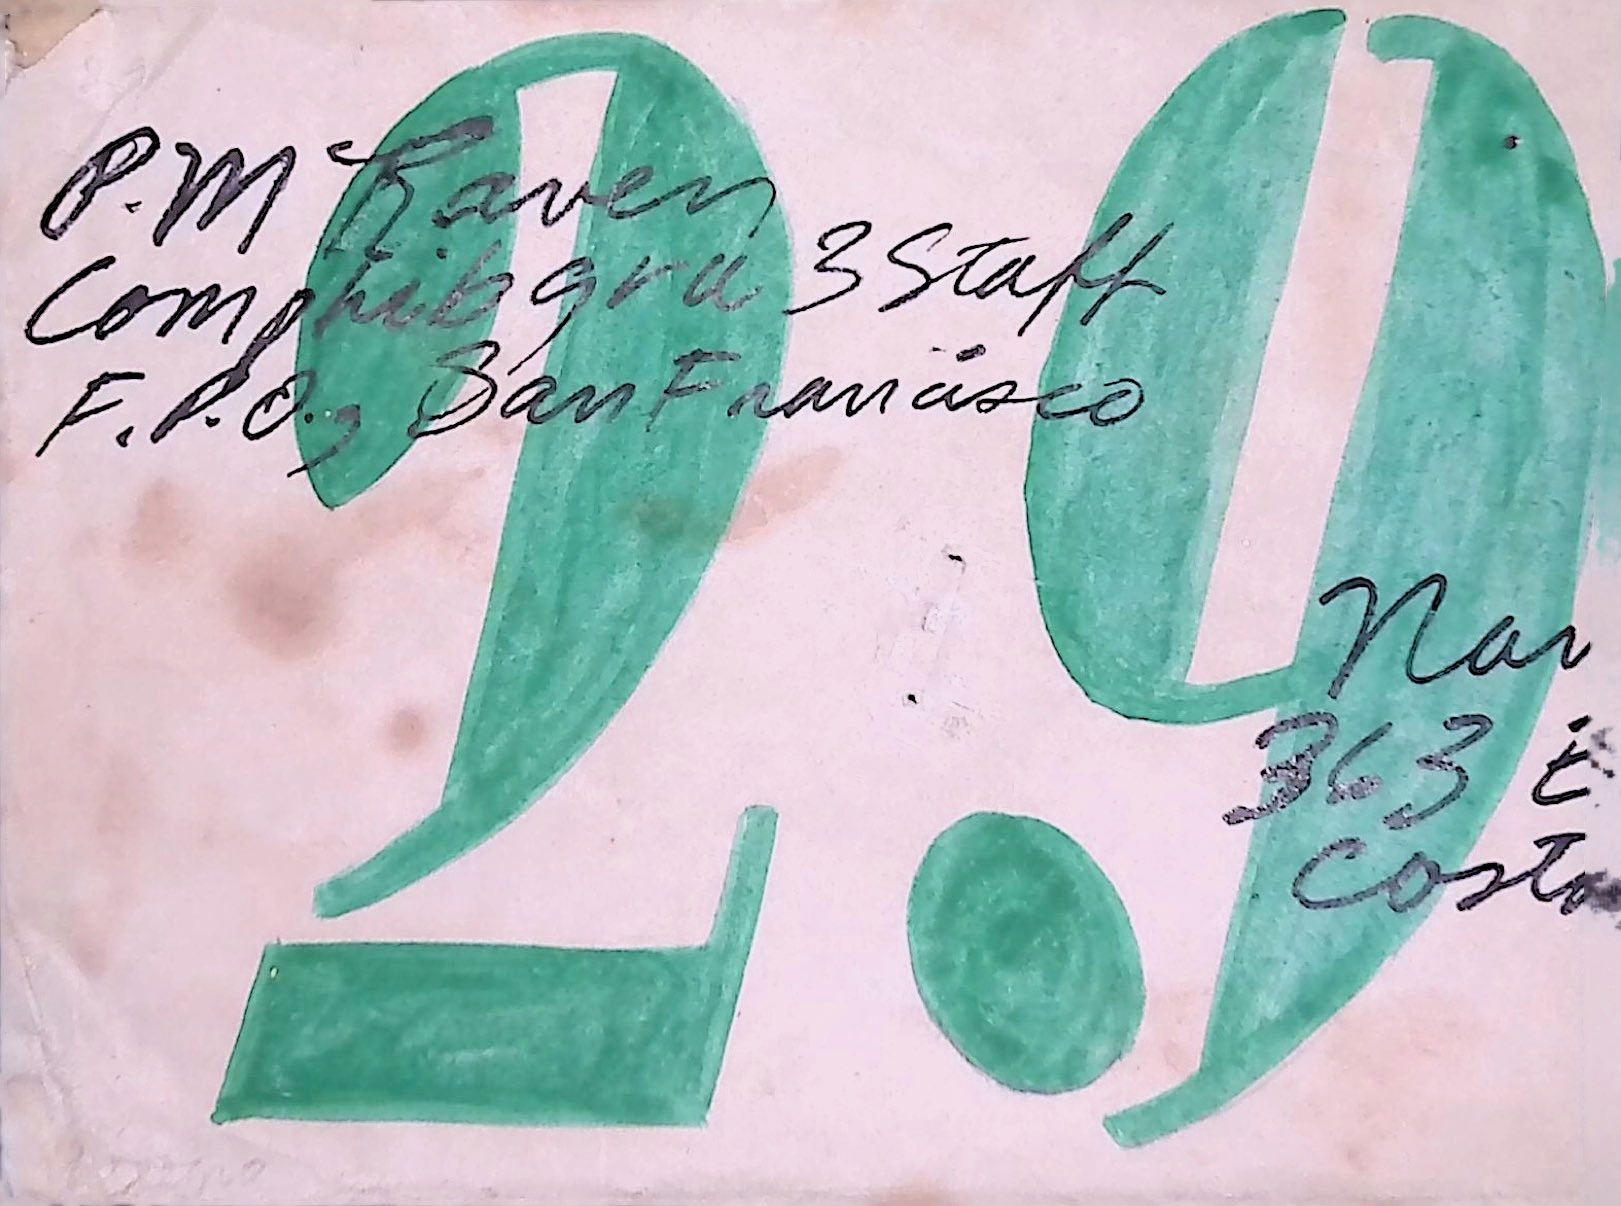 P.M Raven
Comphibgru 3 Staff
F.P.O., San Francisco
29
363 E
Costa